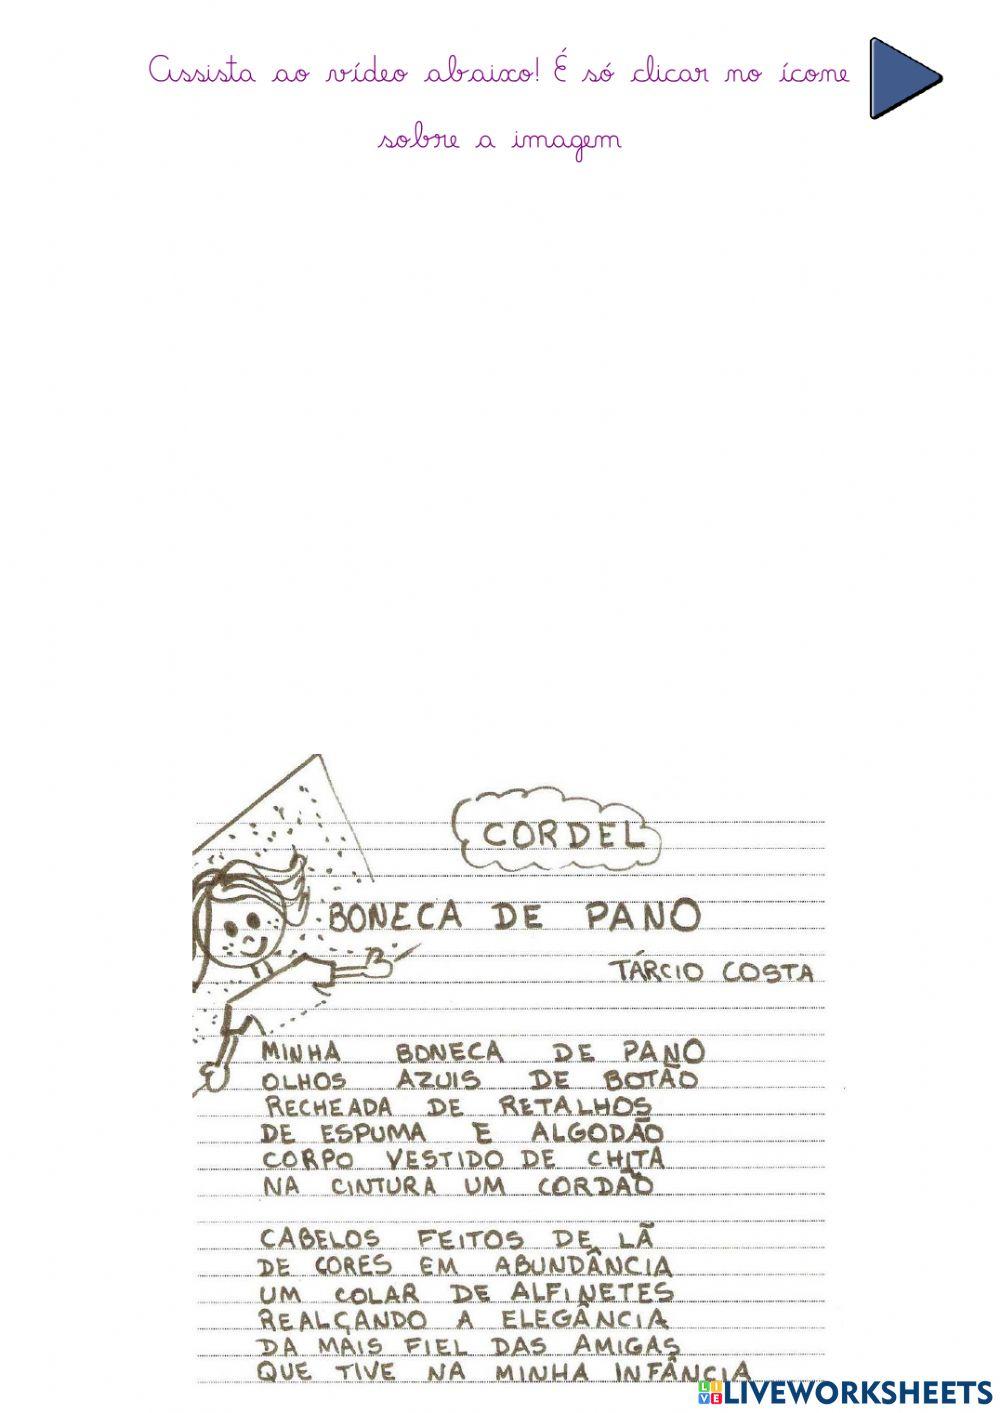 Assista ao vídeo abaixo! É só clicar no ícone
sobre a imagem
CORDEL
BONECA DE PANO
TÁRCIO COSTA
MINHA BONECA DE PANO
OLHOS AZUIS DE BOTÃO
RECHEADA DE RETALHOS
DE ESPUMA E ALGODÃO
CORPO VESTIDO DE CHITA
NA CINTURA UM CORDÃO
CABELOS FEITOS DE LÃ
DE CORES EM ABUNDÂNCIA
UM COLAR DE ALFINETES
REALÇANDO A ELEGÂNCIA
DA MAIS FIEL DAS AMIGAS
QUE TIVE NA MINHA INFÂNCIA
LIVE LIVEWORKSHEETS